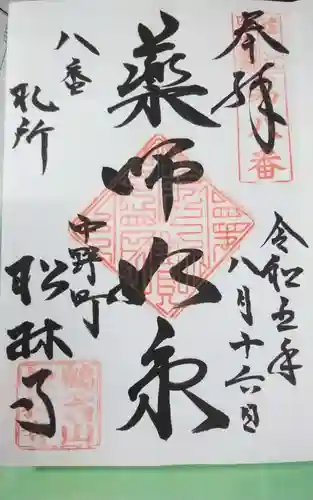 奉拝
令和五年
八月十六日
薬師如来
八番
札所
中野町
松林寺